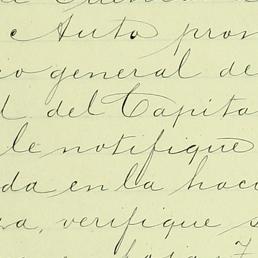 Auto pron
o general de
del Capita
le notifique
da en la haci
a, verifique s